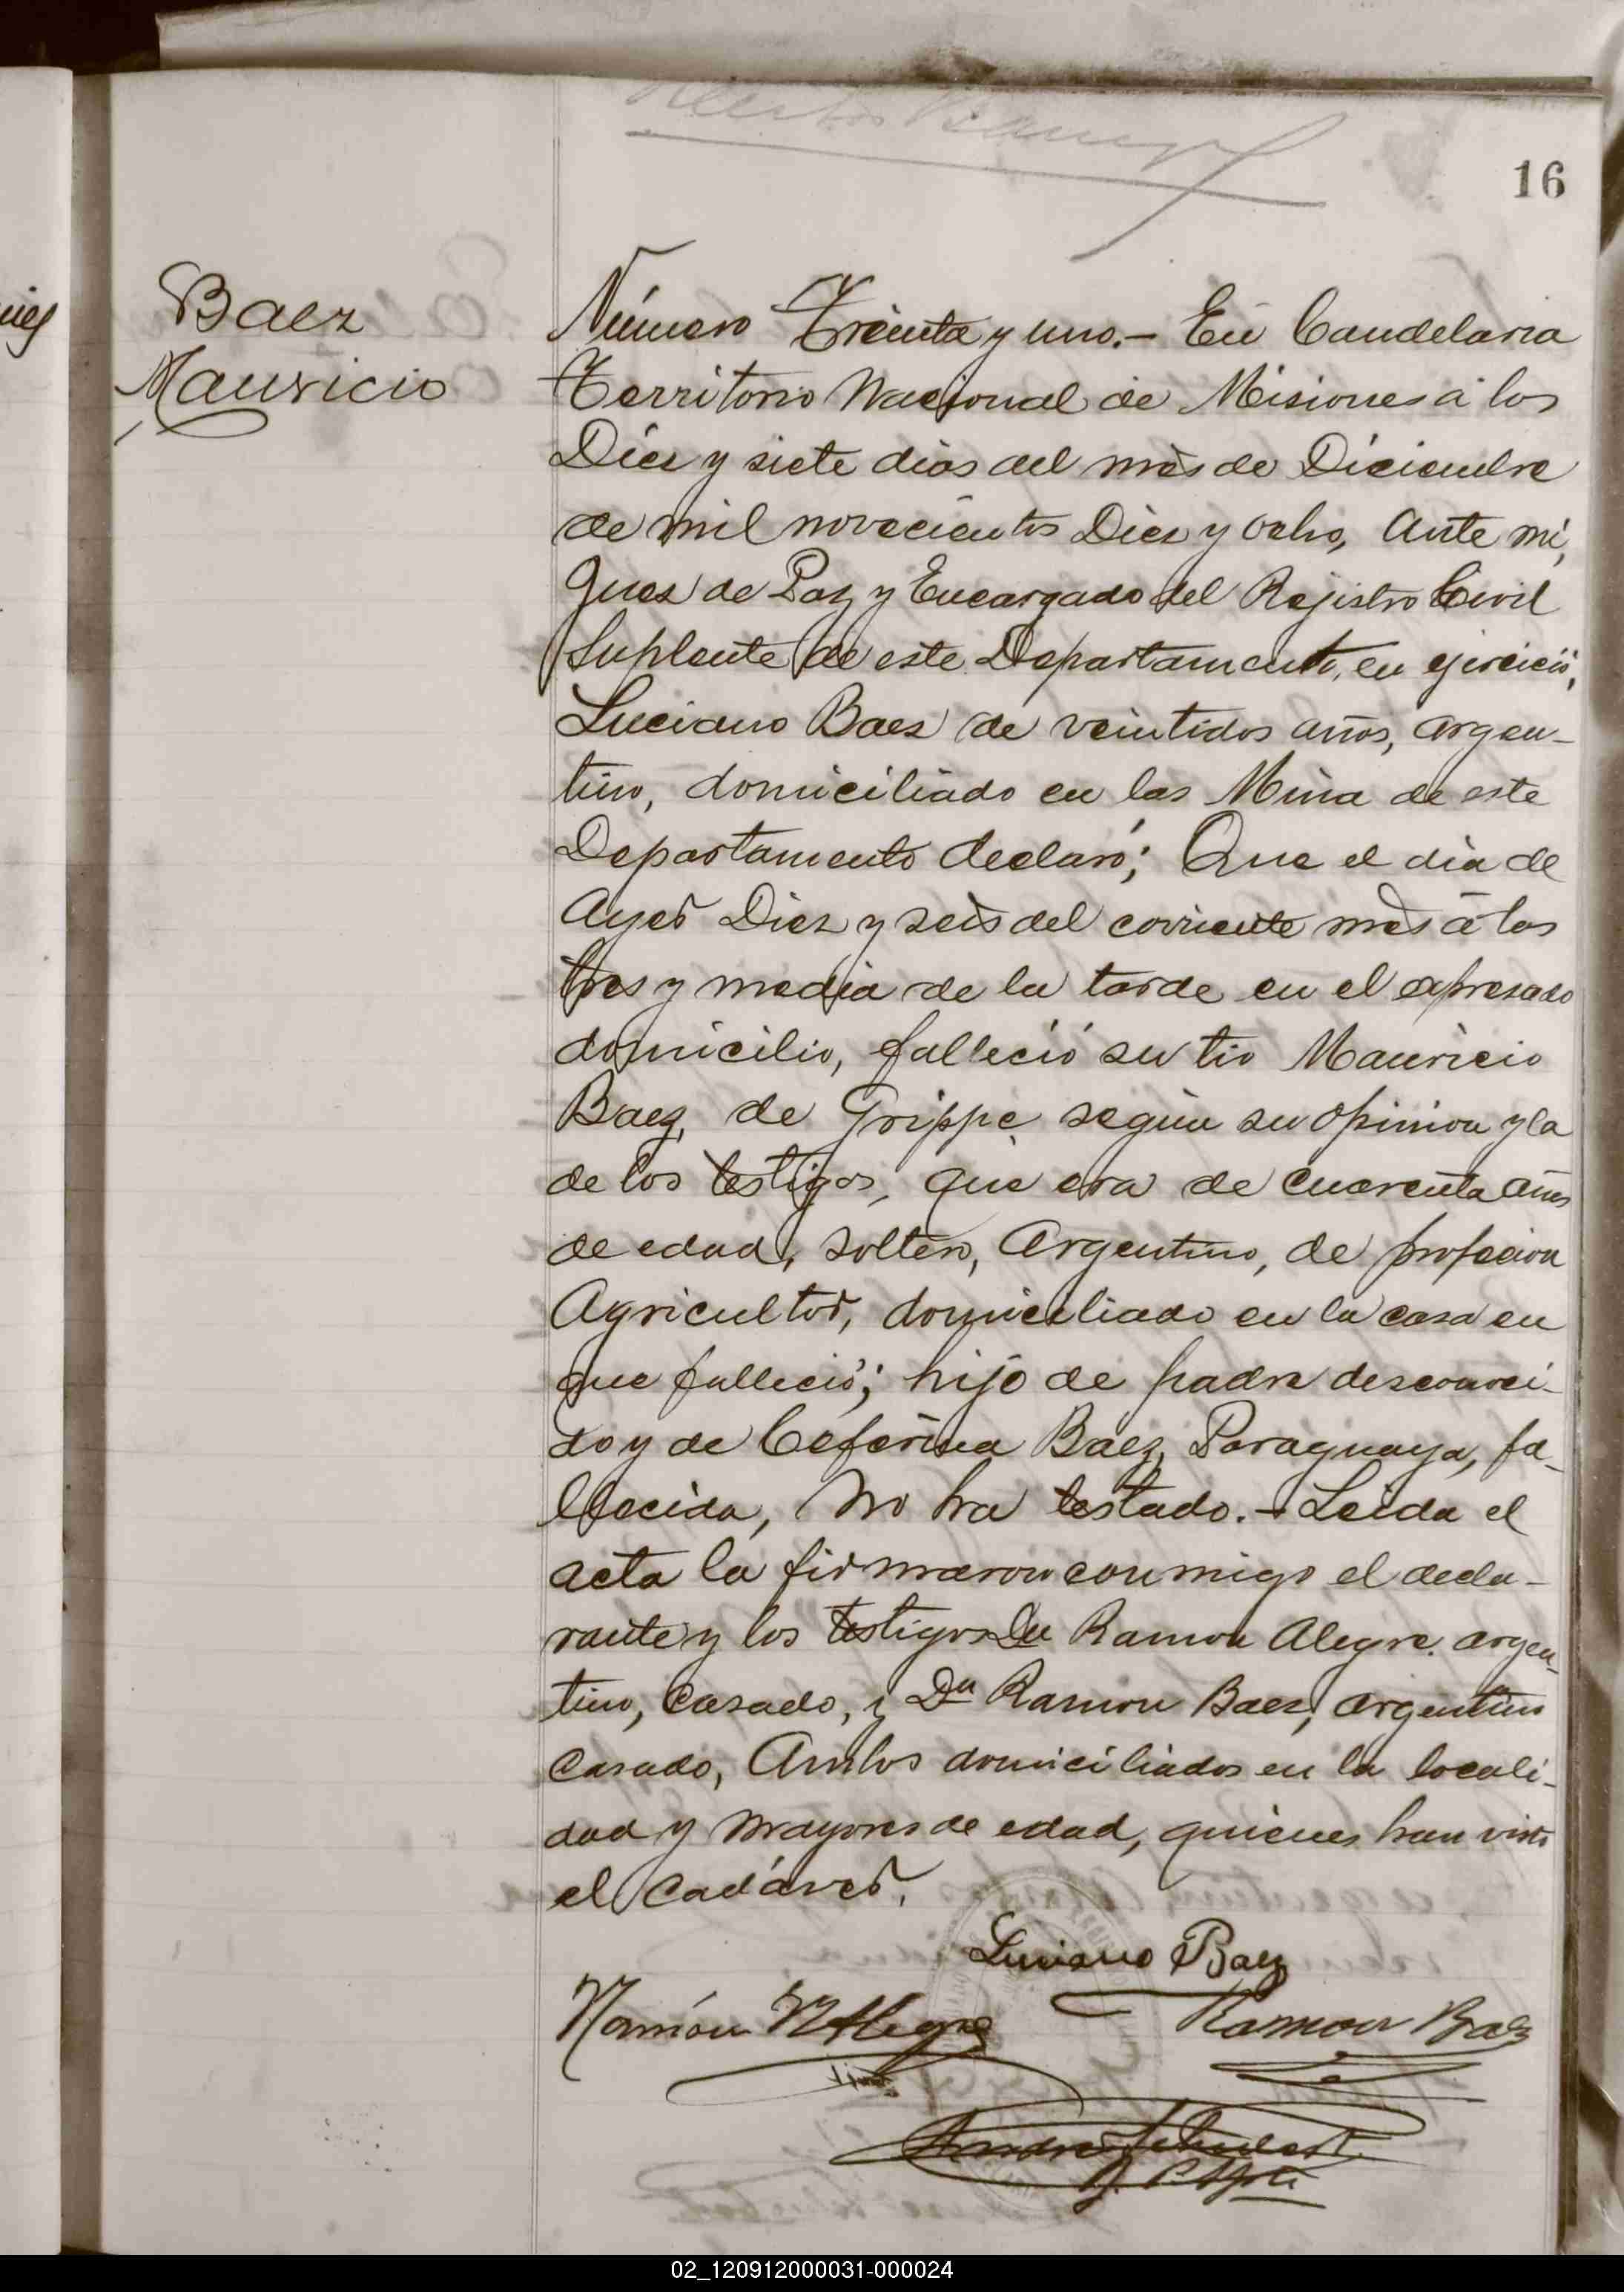 16
Baez
Mauricio
Número Treinta y uno.- En Candelaria
Territorio Nacional de Misiones á los
Diez y siete dias del mès de Diciembre
de mil novecientos Diez y ocho, Ante mi,
Juez de Paz y Encargado del Rejistro Civil
Suplente de este Departamento, en ejercicio,
Luciano Baez de veintidos años, argen-
tino, domiciliado en las Mina de este
Departamento declaró; Que el dia de
Ayer Diez y seis del corriente mès á las
tres y media de la tarde en el expresado
domicilio, falleció su tio Mauricio
Baez, de Grippe según su opinion y la
de los testigos, que era de cuarenta años
de edad, soltero, Argentino, de profecion
Agricultor, domiciliado en la casa en
que falleció; hijo de padre desconoci-
do y de Ceferina Baez, Paraguaya, fa-
llecida, No ha testado.- Leida el
acta la firmaron conmigo el decla-
rante y los testigos Dn Ramon Alegre. argen-
tino, casado, y Dn Ramon Baez, argentino
casado, Ambos domiciliados en la locali-
dad y mayores de edad, quienes han visto
el cadáver.
Luciano Baez
Ramón Alegre
Ramon Baez
02_120912000031-000024